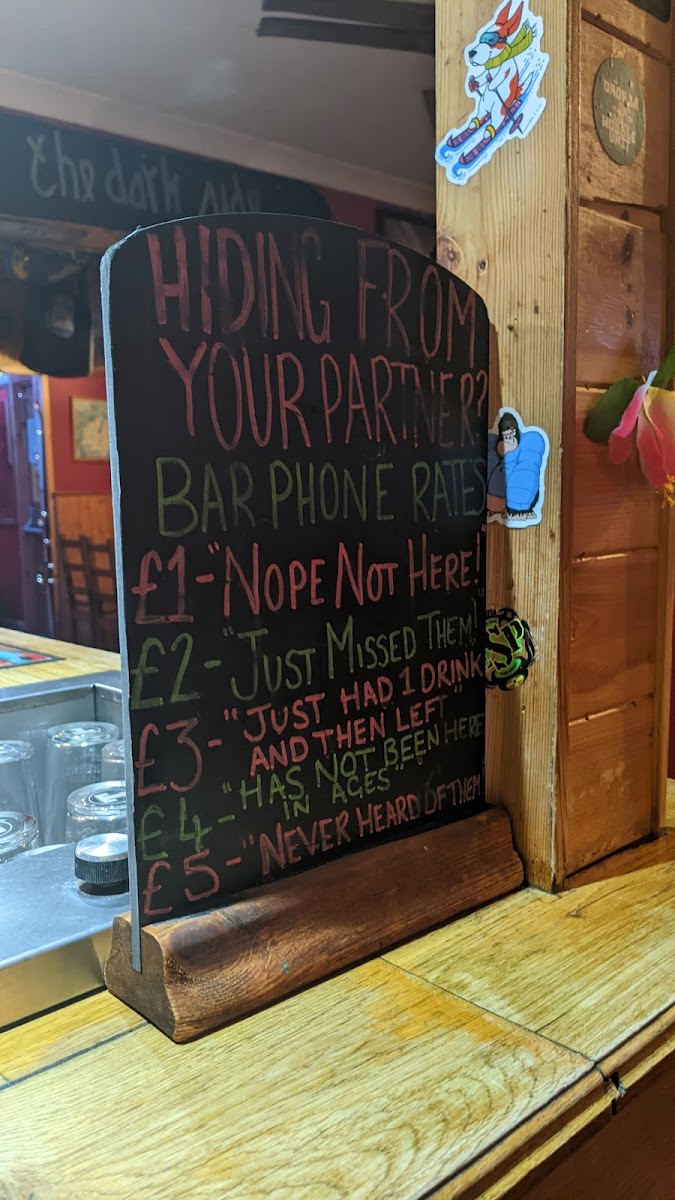 the dark side
HIDING FROM
YOUR PARTNER?
BAR PHONE RATES
£1-"NOPE NOT HERE!"
£2-"JUST MISSED THEM!"
£3-"JUST HAD 1 DRINK
AND THEN LEFT"
£4-"HAS NOT BEEN HERE
IN AGES"
£5-"NEVER HEARD OF THEM